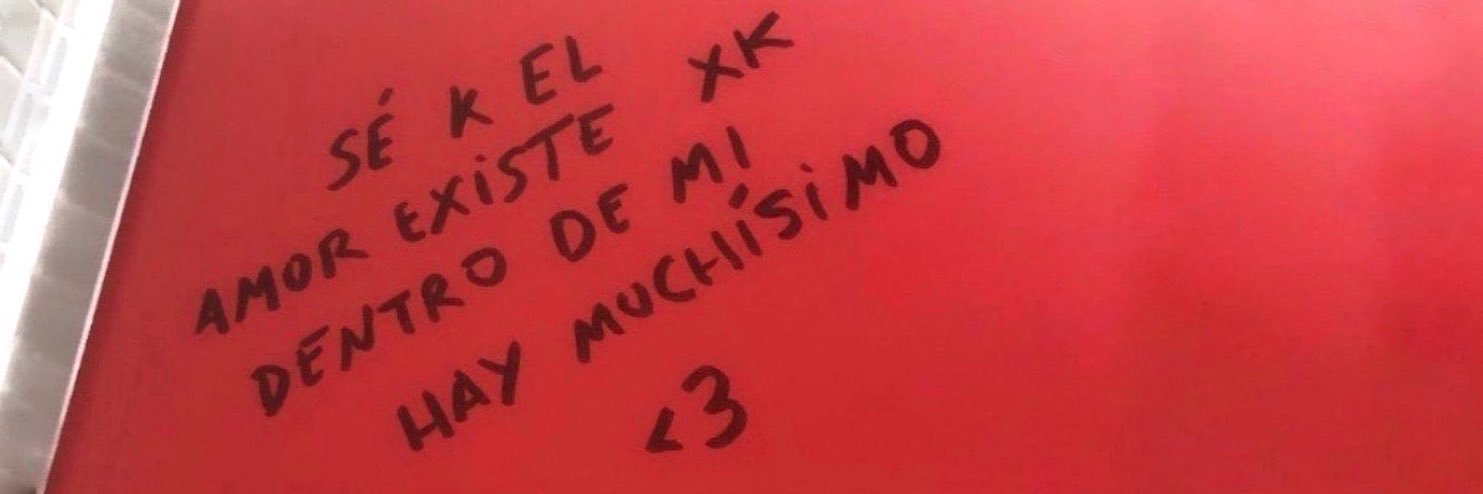 SÉ K EL
AMOR EXiSTE XK
DENTRO DE MI
HAY MUCHÍSiMO
<3